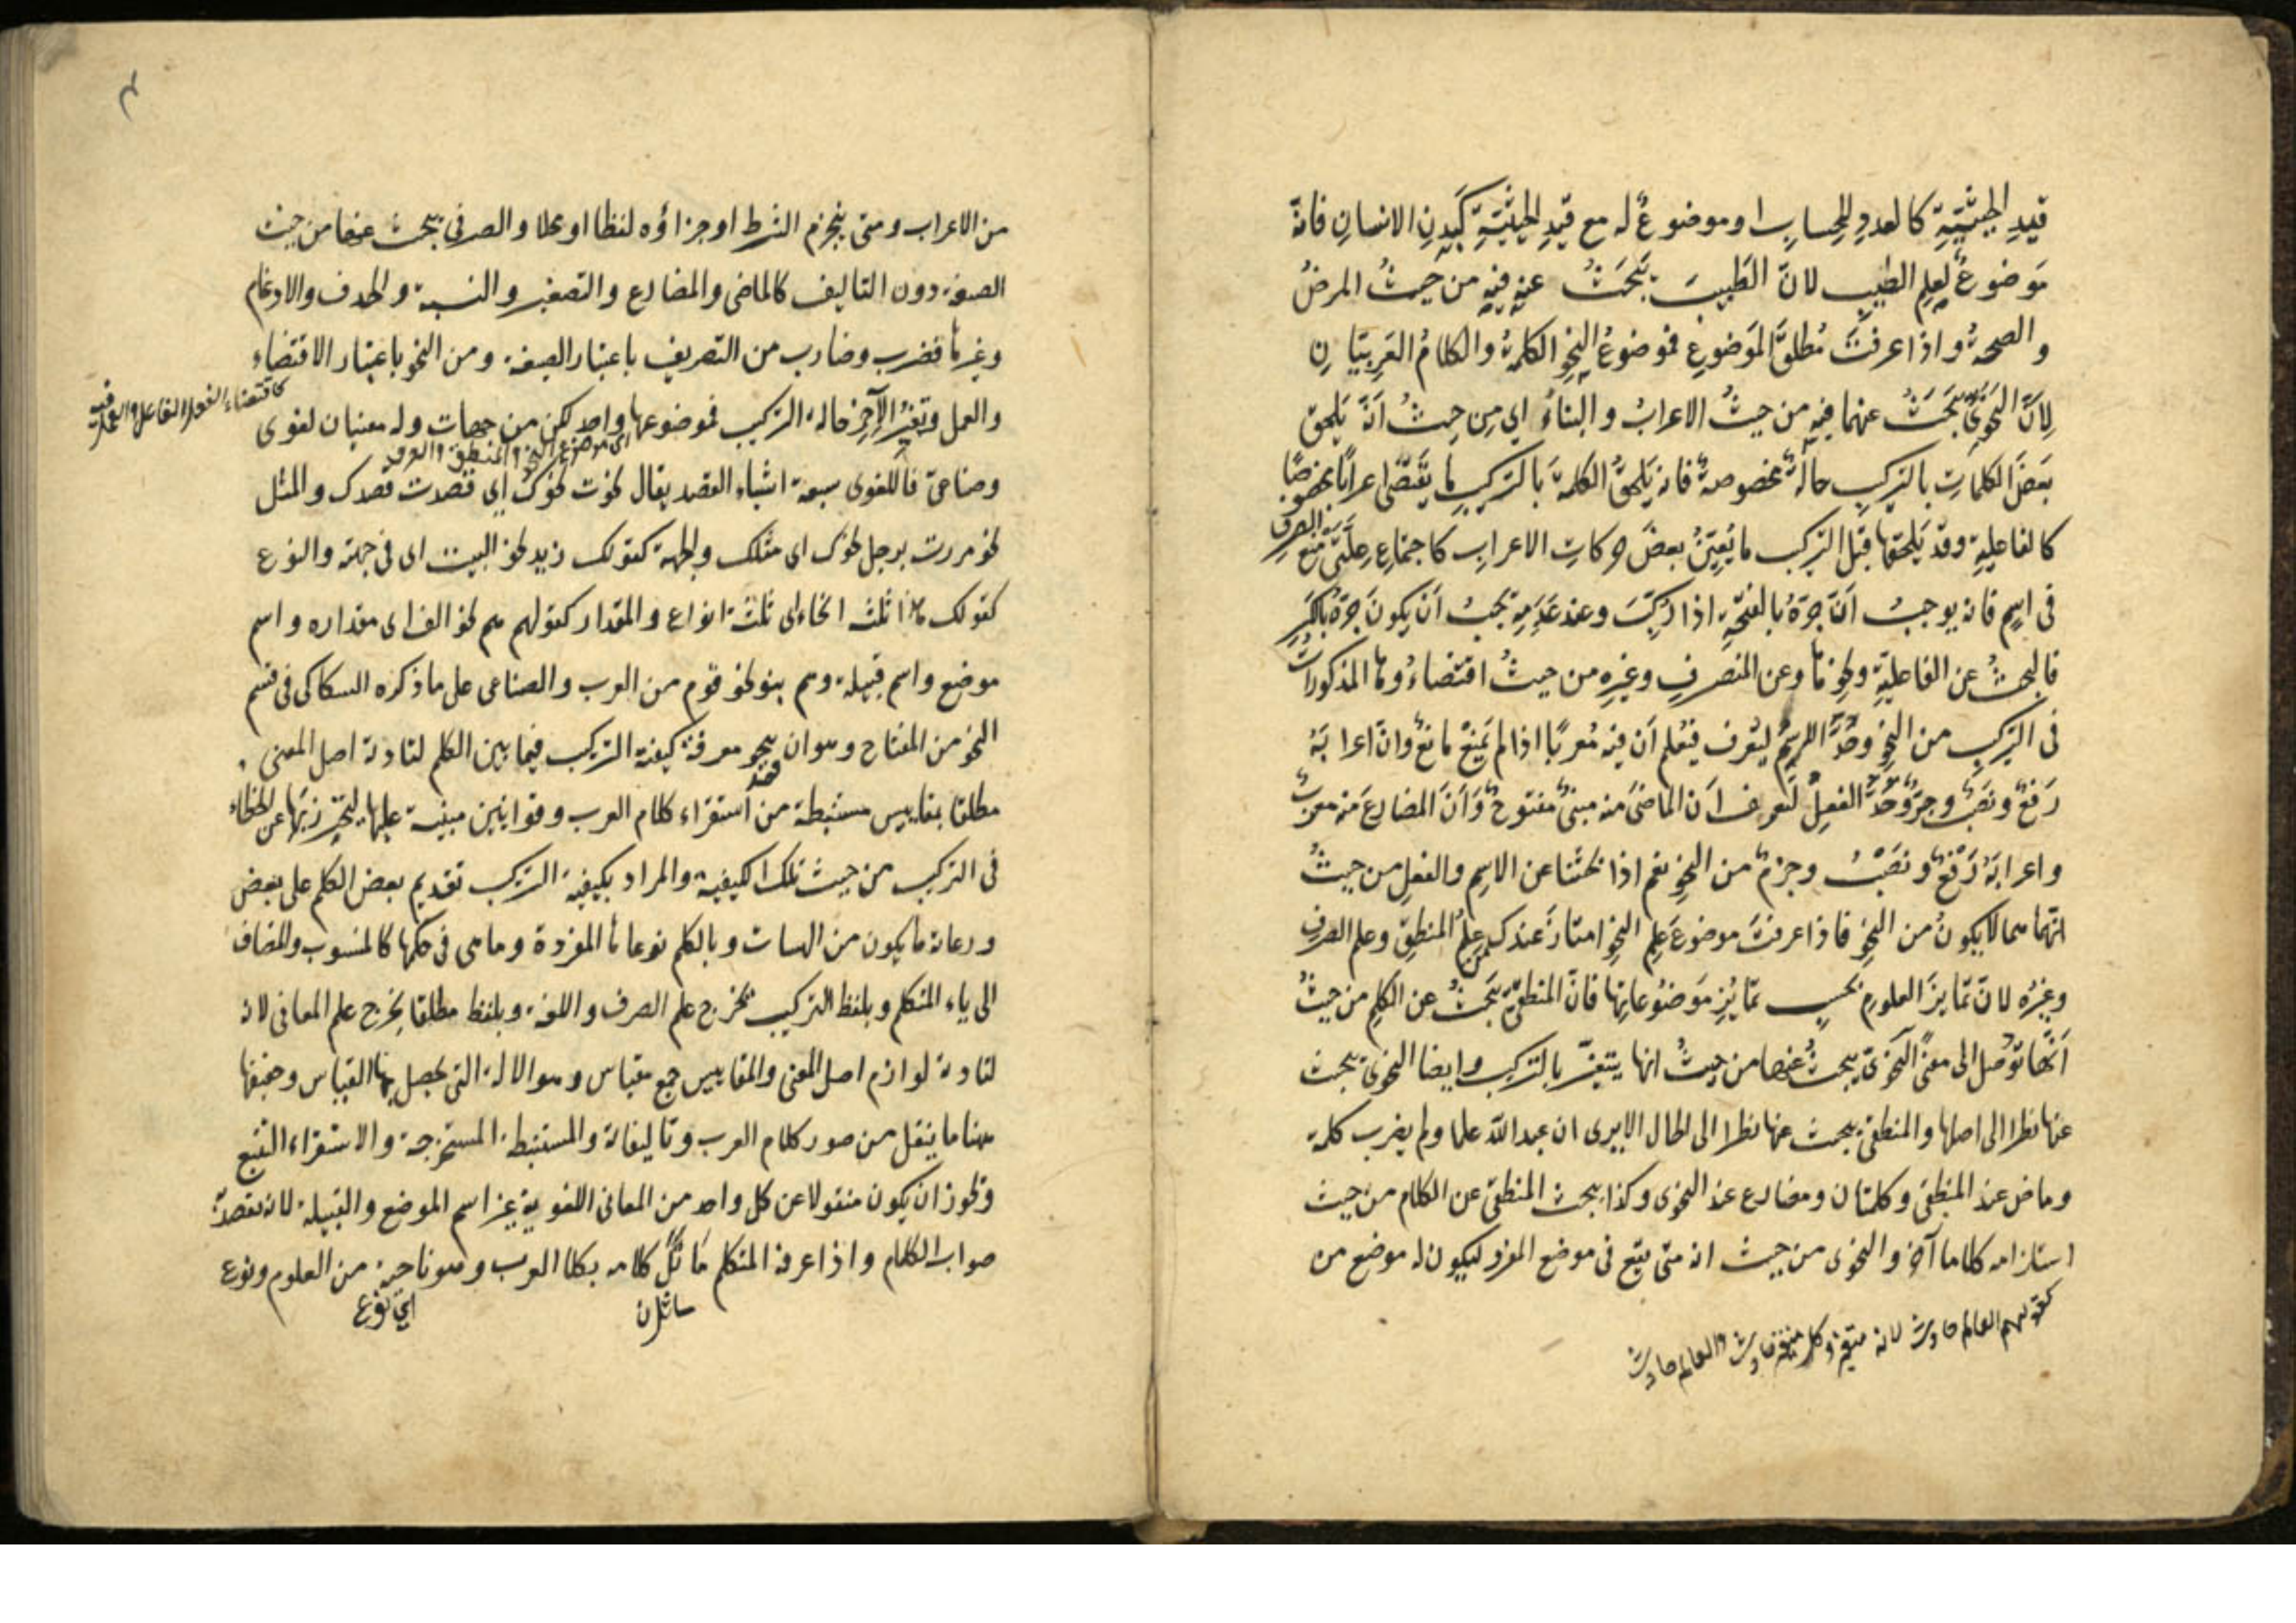 قيدِ الحيثيّةِ كالعددِ للحسابِ او موضوعٌ له مع قيدِ الحيثيّةِ كبدنِ الانسانِ فانّه
موضوعٌ لعلمِ الطبِ لانّ الطبيبَ يبحثُ عنه فيه من حيثُ المرضُ
والصحةُ واذا عرفتَ مُطلقَ الموضوعِ فموضوعُ النحوِ الكلمةُ والكلامُ العربيّانِ
لانّ النحويَّ يبحثُ عنهما فيه من حيثُ الاعرابُ والبناءُ اي من حيثُ انّه يلحق
بعضَ الكلماتِ بالتركيبِ حالةٌ مخصوصةٌ فانه يلحقُ الكلمةَ بالتركيبِ ما يقتضى اعرابًا مخصوصًا
كالفاعليةِ وقد يلحقها قبل التركيب ما يُعيّنُ بعضَ حركاتِ الاعرابِ كاجتماعِ علّتى منع الصرفِ
فى اسمٍ فانه يوجبُ انّ جرّهُ بالفتحةِ اذا رُكّبَ وعند عدمِه يجبُ ان يكونَ جرّهُ بالكسرِ
فالبحثُ عن الفاعليةِ ونحوِها وعن المنصرفِ وغيرِه من حيثُ اقتضاءُوها المذكوراتُ
فى التركيبِ من النحوِ وحدُّ الاسمِ ليُعرف فيُعلم ان فيه مُعربًا اذا لم يمنعْ مانعٌ وانّ اعرابَهُ
رفعٌ ونصبٌ وجرٌّ وحدُّ الفعلِ لتعرف ان الماضىَ منه مبنىٌ مفتوحٌ وانّ المضارعَ منه معربٌ
واعرابَهُ رفعٌ ونصبٌ وجزمٌ من النحوِ نعم اذا بحثنا عن الاسمِ والفعلِ من حيثُ
انهما هما لا يكونُ من النحوِ فاذا عرفتَ موضوعَ علمِ النحوِ امتازَ عندك عن علمُ المنطقِ وعلم الصرفِ
وغيرُه لانّ تمايزَ العلومِ بحسبِ تمايُزِ موضوعاتِها فانّ المنطقىَّ يبحثُ عن الكلمِ من حيثُ
انّها تُوصل الى معنًى النحوىّ يبحثُ عنها من حيثُ انها يتغيّر بالتركيب وايضا النحوىّ يبحث
عنها نظرا الى اصلها والمنطقىّ يبحث عنها نظرا الى الحال الايرى ان عبد الله علما ولم يضرب كلمة
وماض عند المنطقى وكلمتان ومضارع عند النحوى وكذا يبحث المنطقى عن الكلام من حيث
استلزامه كلاما آخر والنحوى من حيث انه متى يقع فى موضع المفرد ليكون له موضع من
كقولهم العالم حادث لانه متغير وكل متغير حادث فالعالم حادث
من الاعراب ومتى ينجزم الشرط او جزاؤه لفظا او محلا والصرفى يبحث عنها من حيث
الصيغة دون التاليف كالماضى والمضارع والتصغير والنسبة والحذف والادغام
وغيرها فضرب وضارب من التصريف باعتبار الصيغة ومن النحو باعتبار الاقتضاء
كاقتضاء الفعل الفاعل والظرفية
والعمل وتغيّر الآخِر حالة التركيب فموضوعها واحد لكن من جهات وله معنيان لغوى
اى موضوع النحو والمنطق والصرف
وصناعىّ فاللغوى سبعة اشياء القصد يقال نحوت نحوك اى قصدت قصدك والمثل
نحو مررت برجل نحوك اى مثلك والجهة كقولك زيد نحو البيت اى فى جهته والنوع
كقولك هذا ثلث انحاء اى ثلثة انواع والمقدار كقولهم هم نحو الف اى مقداره واسم
موضع واسم قبيلة وهم بنو نحو قوم من العرب والصناعى على ما ذكره السكاكى فى قسم
النحو من المفتاح وهو ان ينحو معرفة كيفية التركيب فيما بين الكلم لتادية اصل المعنى
قصد
مطلقا بمقاييس مستنبطة من استقراء كلام العرب وقوانين مبنية عليها ليحترز بها عن الخطاء
فى التركيب من حيث تلك الكيفية والمراد بكيفية التركيب تقديم بعض الكلم على بعض
ورعاية ما يكون من الهيئات وبالكلم نوعاها المفردة وما هى فى حكمها كالمنسوب والمضاف
الى ياء المتكلم وبلفظ التركيب يخرج علم الصرف واللغة وبلفظ مطلقا يخرج علم المعانى لانه
لتادية لوازم اصل المعنى والمقاييس جمع مقياس وهو الالة التى يحصل بها القياس وحقيقتها
هنا ما ينقل من صور كلام العرب وتاليفاته والمستنبطة المستخرجة والاستقراء التتبع
ونحوز ان يكون منقولا عن كل واحد من المعانى اللغوية غير اسم الموضع والقبيلة لانه يقصد به
صواب الكلام واذا عرفه المتكلم ماثل كلامه بكلام العرب وهو ناحية من العلوم ونوع
اى نوع